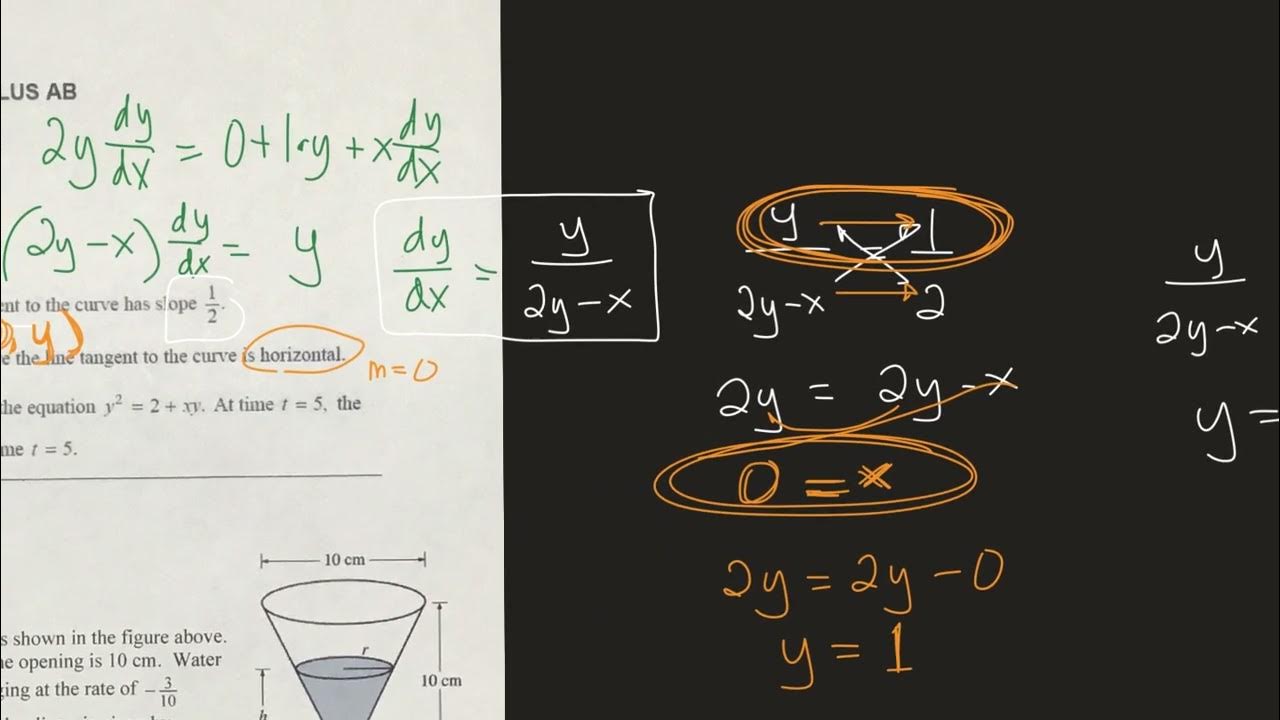 LUS AB
2y dy/dx = 0 + 1·y + x dy/dx
(2y - x) dy/dx = y
dy/dx = y/(2y - x)
ent to the curve has slope 1/2.
, y)
e the line tangent to the curve is horizontal.
m = 0
the equation y² = 2 + xy. At time t = 5, the
me t = 5.
10 cm
s shown in the figure above.
e opening is 10 cm. Water
ging at the rate of -3/10
r
h
10 cm
y/(2y - x) = 1/2
2y = 2y - x
0 = x
2y = 2y - 0
y = 1
y/(2y - x)
y =